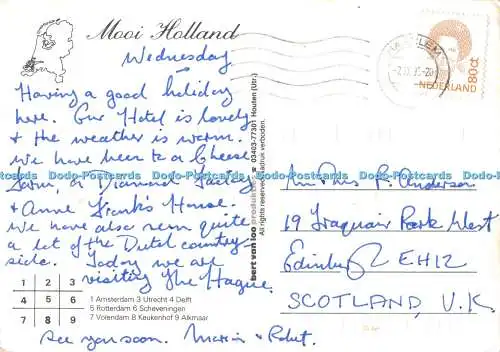 Mooi Holland
Wednesday
Having a good holiday
here. Our Hotel is lovely
& the weather is warm.
We have been to a Cheese
Farm, a Diamond Factory
& Anne Frank's House.
We have also seen quite
a lot of the Dutch country-
side. Today we are
visiting The Hague.
See you soon. Marion & Robert.
1 2 3
4 5 6
7 8 9
1 Amsterdam 3 Utrecht 4 Delft
5 Rotterdam 6 Scheveningen
7 Volendam 8 Keukenhof 9 Alkmaar
bert van loo produkties
03403-77301 Houten (Utr.)
All rights reserved
nadruk verboden.
80 ct
NEDERLAND
Mr & Mrs Anderson
19 Traquair Park West
Edinburgh EH12
SCOTLAND, U.K.
Dodo-Postcards Dodo-Postcards Dodo-Postcards Dodo-Postcards Dodo-Postcards Dodo-Postcards